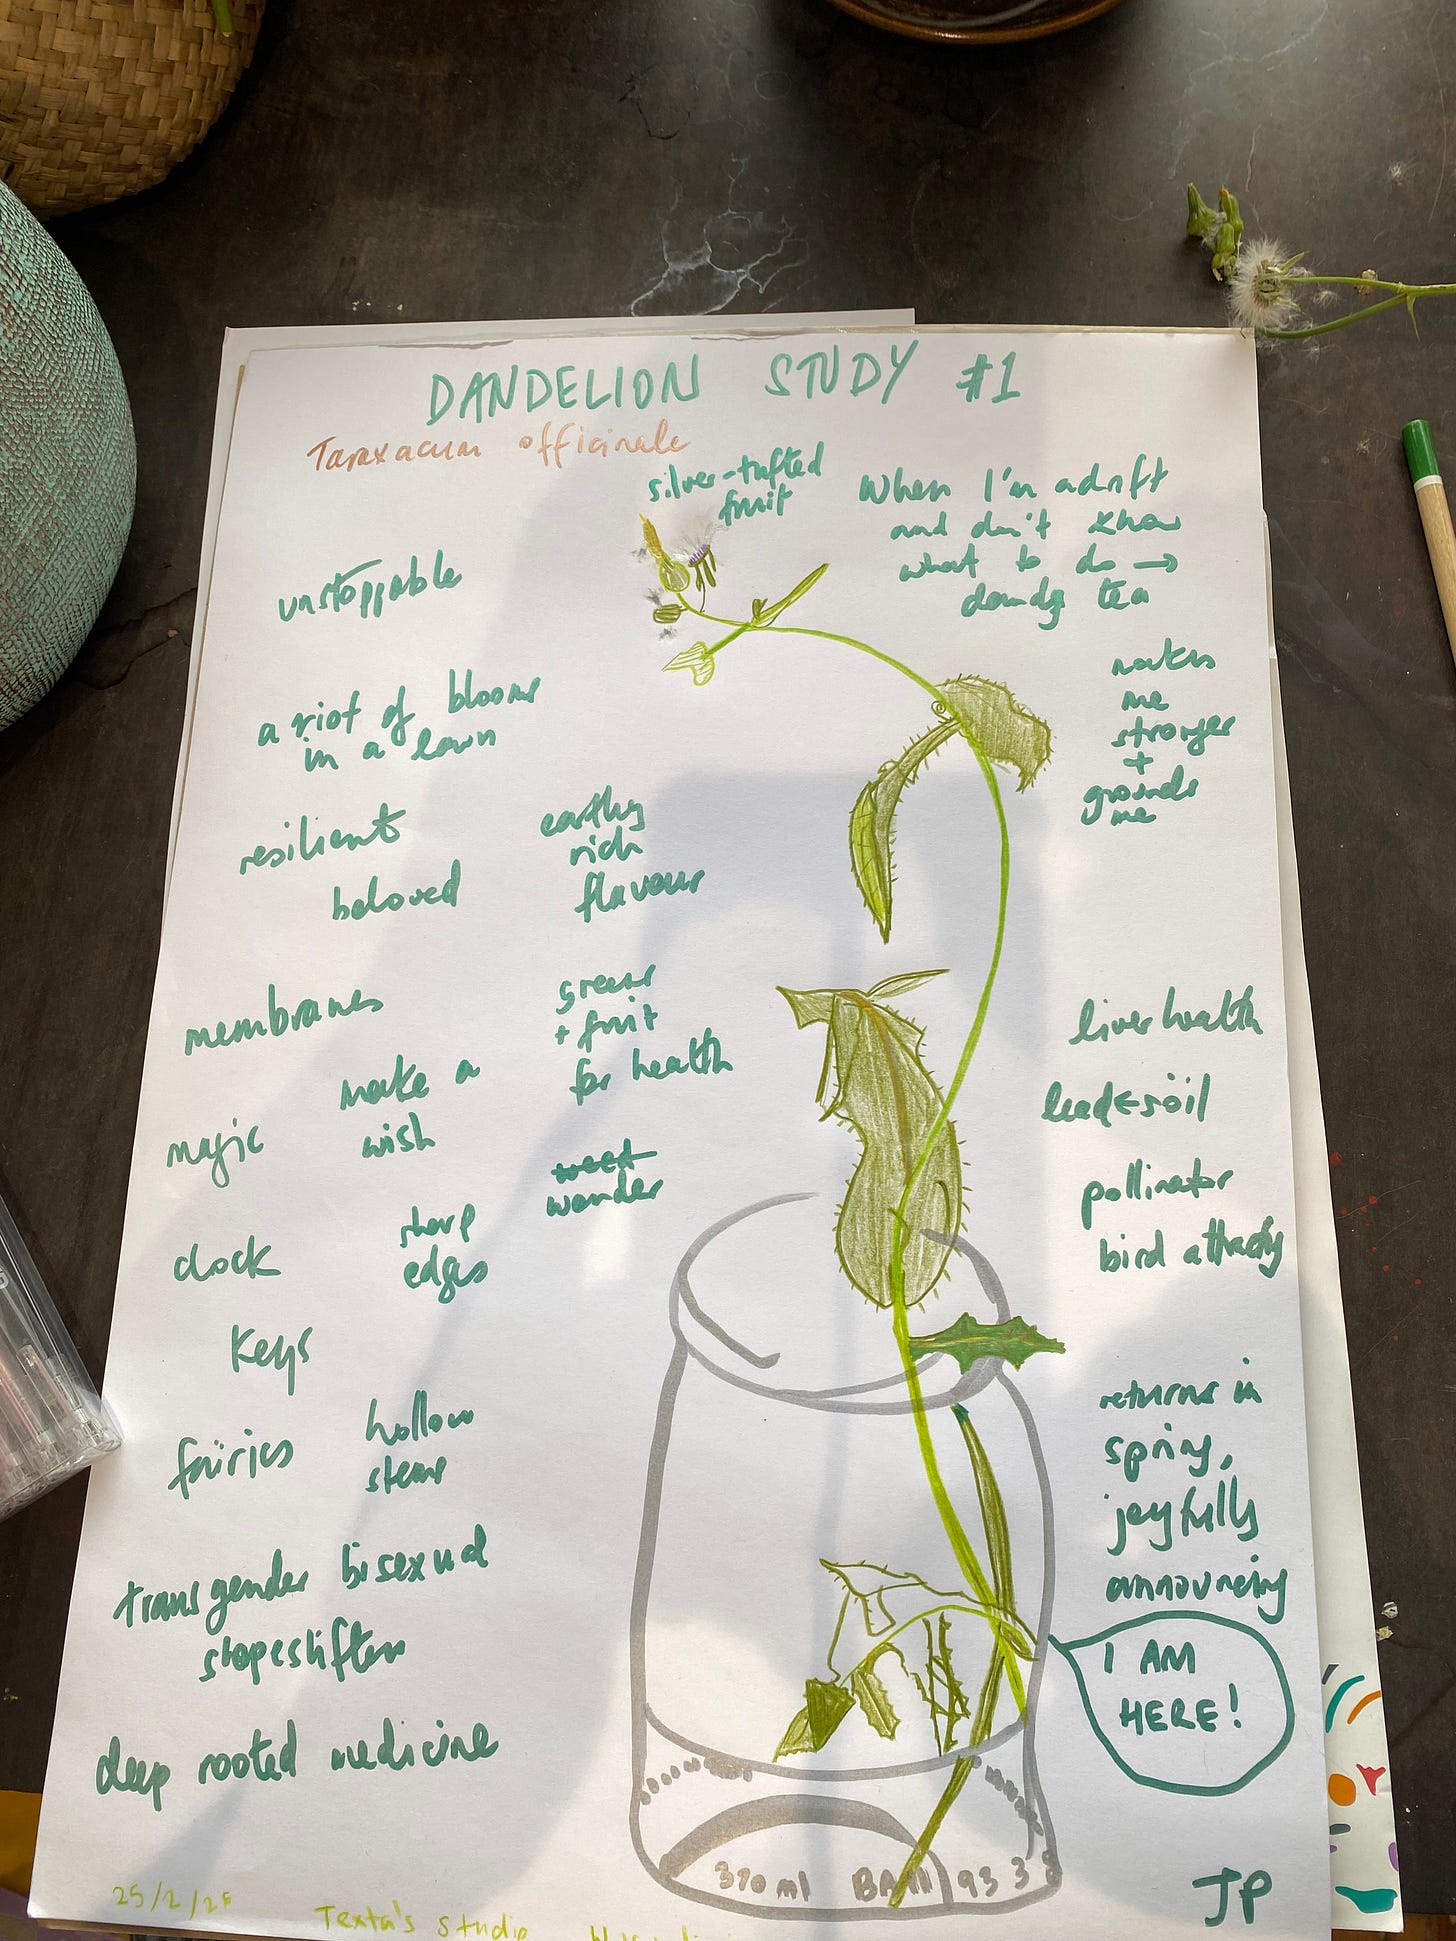 DANDELION STUDY #1
Taraxacum officinale
silver-tufted
fruit
When I'm adrift
and don't know
what to do →
dandy tea
makes
me
stronger
+
grounds
me
unstoppable
a riot of blooms
in a lawn
resilient
beloved
earthy
rich
flavour
membranes
greens
+ fruit
for health
make a
wish
magic
weed
wonder
clock
sharp
edges
keys
fairies
hollow
stems
transgender bisexual
shapeshifter
deep rooted medicine
liver health
lead ← soil
pollinator
bird attracty
returns in
spring,
joyfully
announcing
I AM
HERE!
370 ml BALL 93 3
JP
25/2/25
Texta's studio